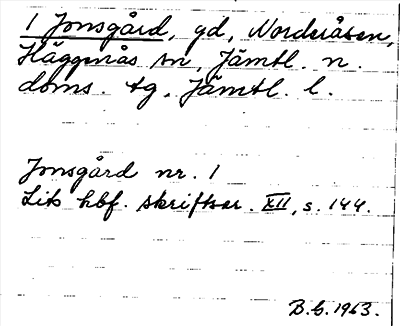 1 Jonsgård, gd, Norderåsen,
Häggenås sn, Jämtl. n.
doms. tg, Jämtl. l.
Jonsgård nr. 1
Lits hbf. skriftser. XII, s. 144.
B.G. 1963.